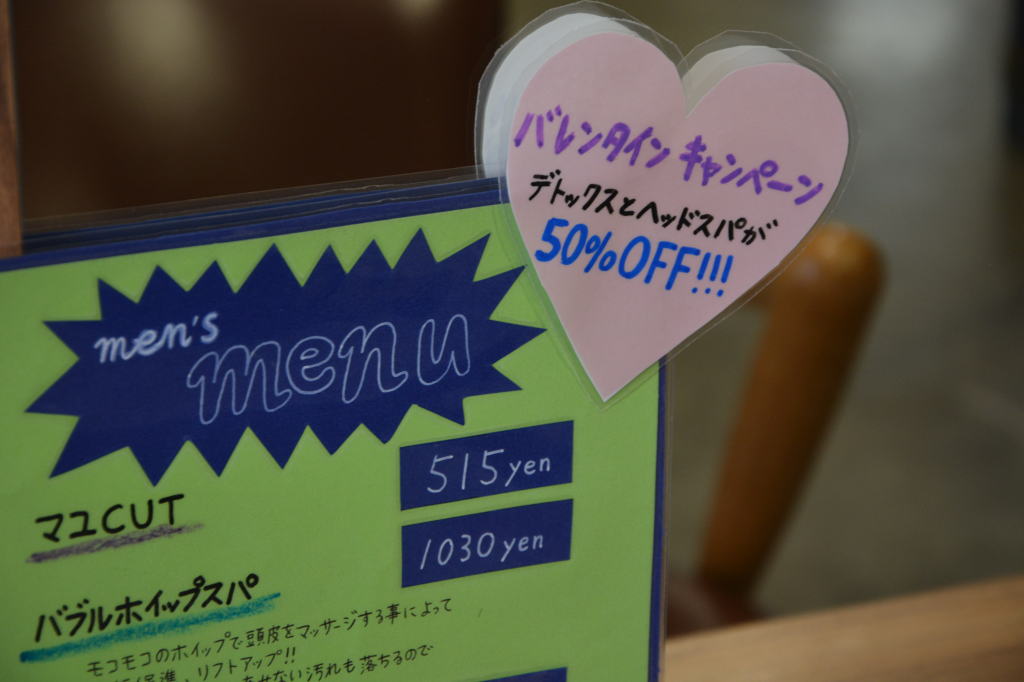 バレンタイン キャンペーン
デトックスとヘッドスパが
50%OFF!!!
men's
menu
マユCUT
515yen
1030yen
バブルホイップスパ
モコモコのホイップで頭皮をマッサージする事によって
促進、リフトアップ!!
せない汚れも落ちるので